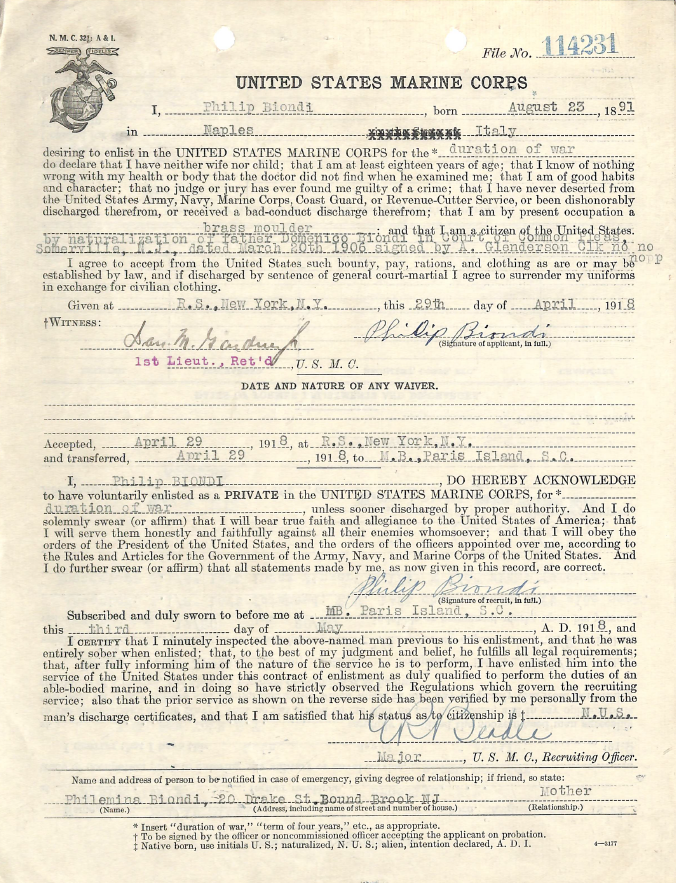 N. M. C. 321; A & I.
File No. 114231
UNITED STATES MARINE CORPS
I, Philip Biondi, born August 23, 1891
in Naples Italy
desiring to enlist in the UNITED STATES MARINE CORPS for the * duration of war
do declare that I have neither wife nor child; that I am at least eighteen years of age; that I know of nothing
wrong with my health or body that the doctor did not find when he examined me; that I am of good habits
and character; that no judge or jury has ever found me guilty of a crime; that I have never deserted from
the United States Army, Navy, Marine Corps, Coast Guard, or Revenue-Cutter Service, or been dishonorably
discharged therefrom, or received a bad-conduct discharge therefrom; that I am by present occupation a
brass moulder; and that I am a citizen of the United States.
by naturalization of father Domenico Biondi in Court of Common Pleas,
Somerville, N.J., dated March 20th 1906 signed by A. Clenderson Clk no no
nopp
I agree to accept from the United States such bounty, pay, rations, and clothing as are or may be
established by law, and if discharged by sentence of general court-martial I agree to surrender my uniforms
in exchange for civilian clothing.
Given at R.S., New York, N.Y., this 29th day of April, 1918
†WITNESS:
Philip Biondi
(Signature of applicant, in full.)
1st Lieut., Ret'd, U. S. M. C.
DATE AND NATURE OF ANY WAIVER.
Accepted, April 29, 1918, at R.S., New York, N.Y.
and transferred, April 29, 1918, to M.B., Paris Island, S.C.
I, Philip BIONDI, DO HEREBY ACKNOWLEDGE
to have voluntarily enlisted as a PRIVATE in the UNITED STATES MARINE CORPS, for *
duration of war, unless sooner discharged by proper authority. And I do
solemnly swear (or affirm) that I will bear true faith and allegiance to the United States of America; that
I will serve them honestly and faithfully against all their enemies whomsoever; and that I will obey the
orders of the President of the United States, and the orders of the officers appointed over me, according to
the Rules and Articles for the Government of the Army, Navy, and Marine Corps of the United States. And
I do further swear (or affirm) that all statements made by me, as now given in this record, are correct.
Philip Biondi
(Signature of recruit, in full.)
Subscribed and duly sworn to before me at MB. Paris Island, S.C.
this third day of May, A. D. 1918, and
I CERTIFY that I minutely inspected the above-named man previous to his enlistment, and that he was
entirely sober when enlisted; that, to the best of my judgment and belief, he fulfills all legal requirements;
that, after fully informing him of the nature of the service he is to perform, I have enlisted him into the
service of the United States under this contract of enlistment as duly qualified to perform the duties of an
able-bodied marine, and in doing so have strictly observed the Regulations which govern the recruiting
service; also that the prior service as shown on the reverse side has been verified by me personally from the
man's discharge certificates, and that I am satisfied that his status as to citizenship is ‡ N.U.S.
Major, U. S. M. C., Recruiting Officer.
Name and address of person to be notified in case of emergency, giving degree of relationship; if friend, so state:
Philemina Biondi, 20 Drake St. Bound Brook NJ Mother
(Name.) (Address, including name of street and number of house.) (Relationship.)
* Insert "duration of war," "term of four years," etc., as appropriate.
† To be signed by the officer or noncommissioned officer accepting the applicant on probation.
‡ Native born, use initials U. S.; naturalized, N. U. S.; alien, intention declared, A. D. I.
4—3177